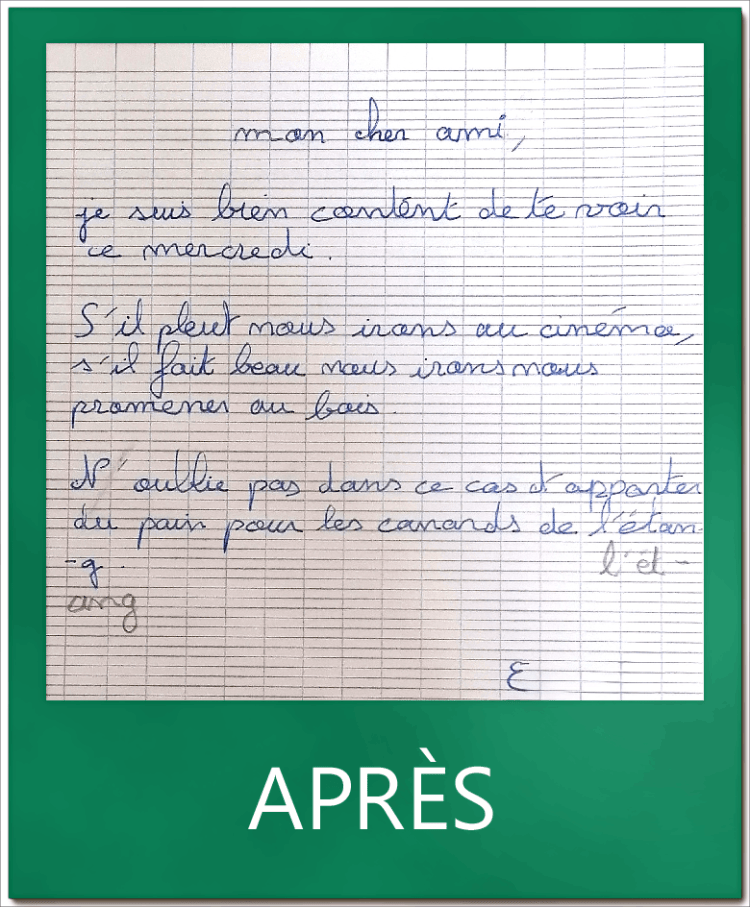 mon cher ami,
je suis bien content de te voir
ce mercredi.
S'il pleut nous irons au cinéma,
s'il fait beau nous irons nous
promener au bois.
N'oublie pas dans ce cas d'apporter
du pain pour les canards de l'étan-
-g.
l'ét-
ang
E
APRÈS